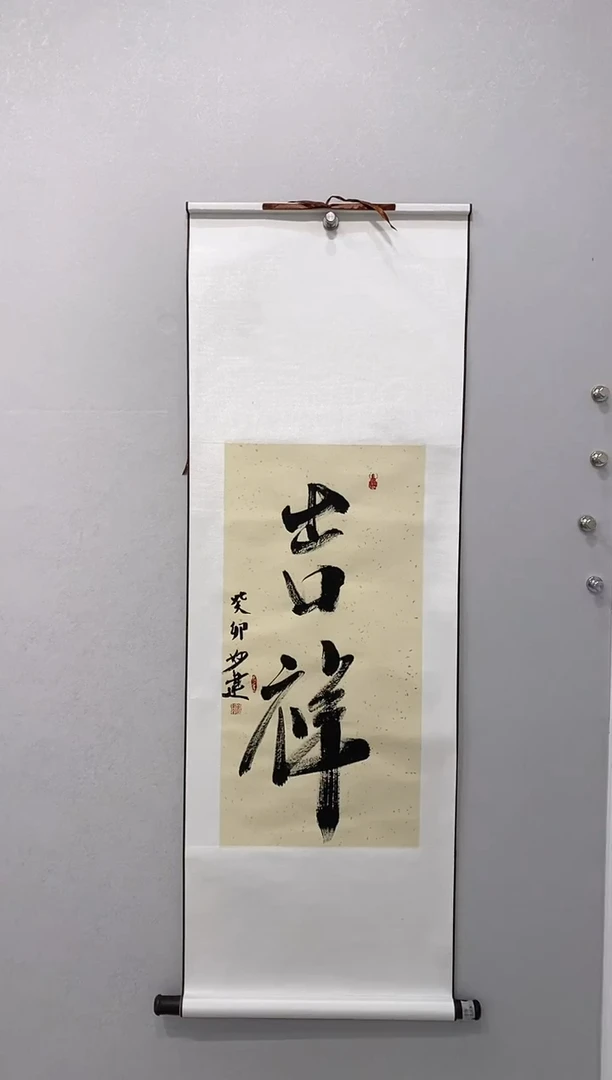 吉祥
癸卯
建